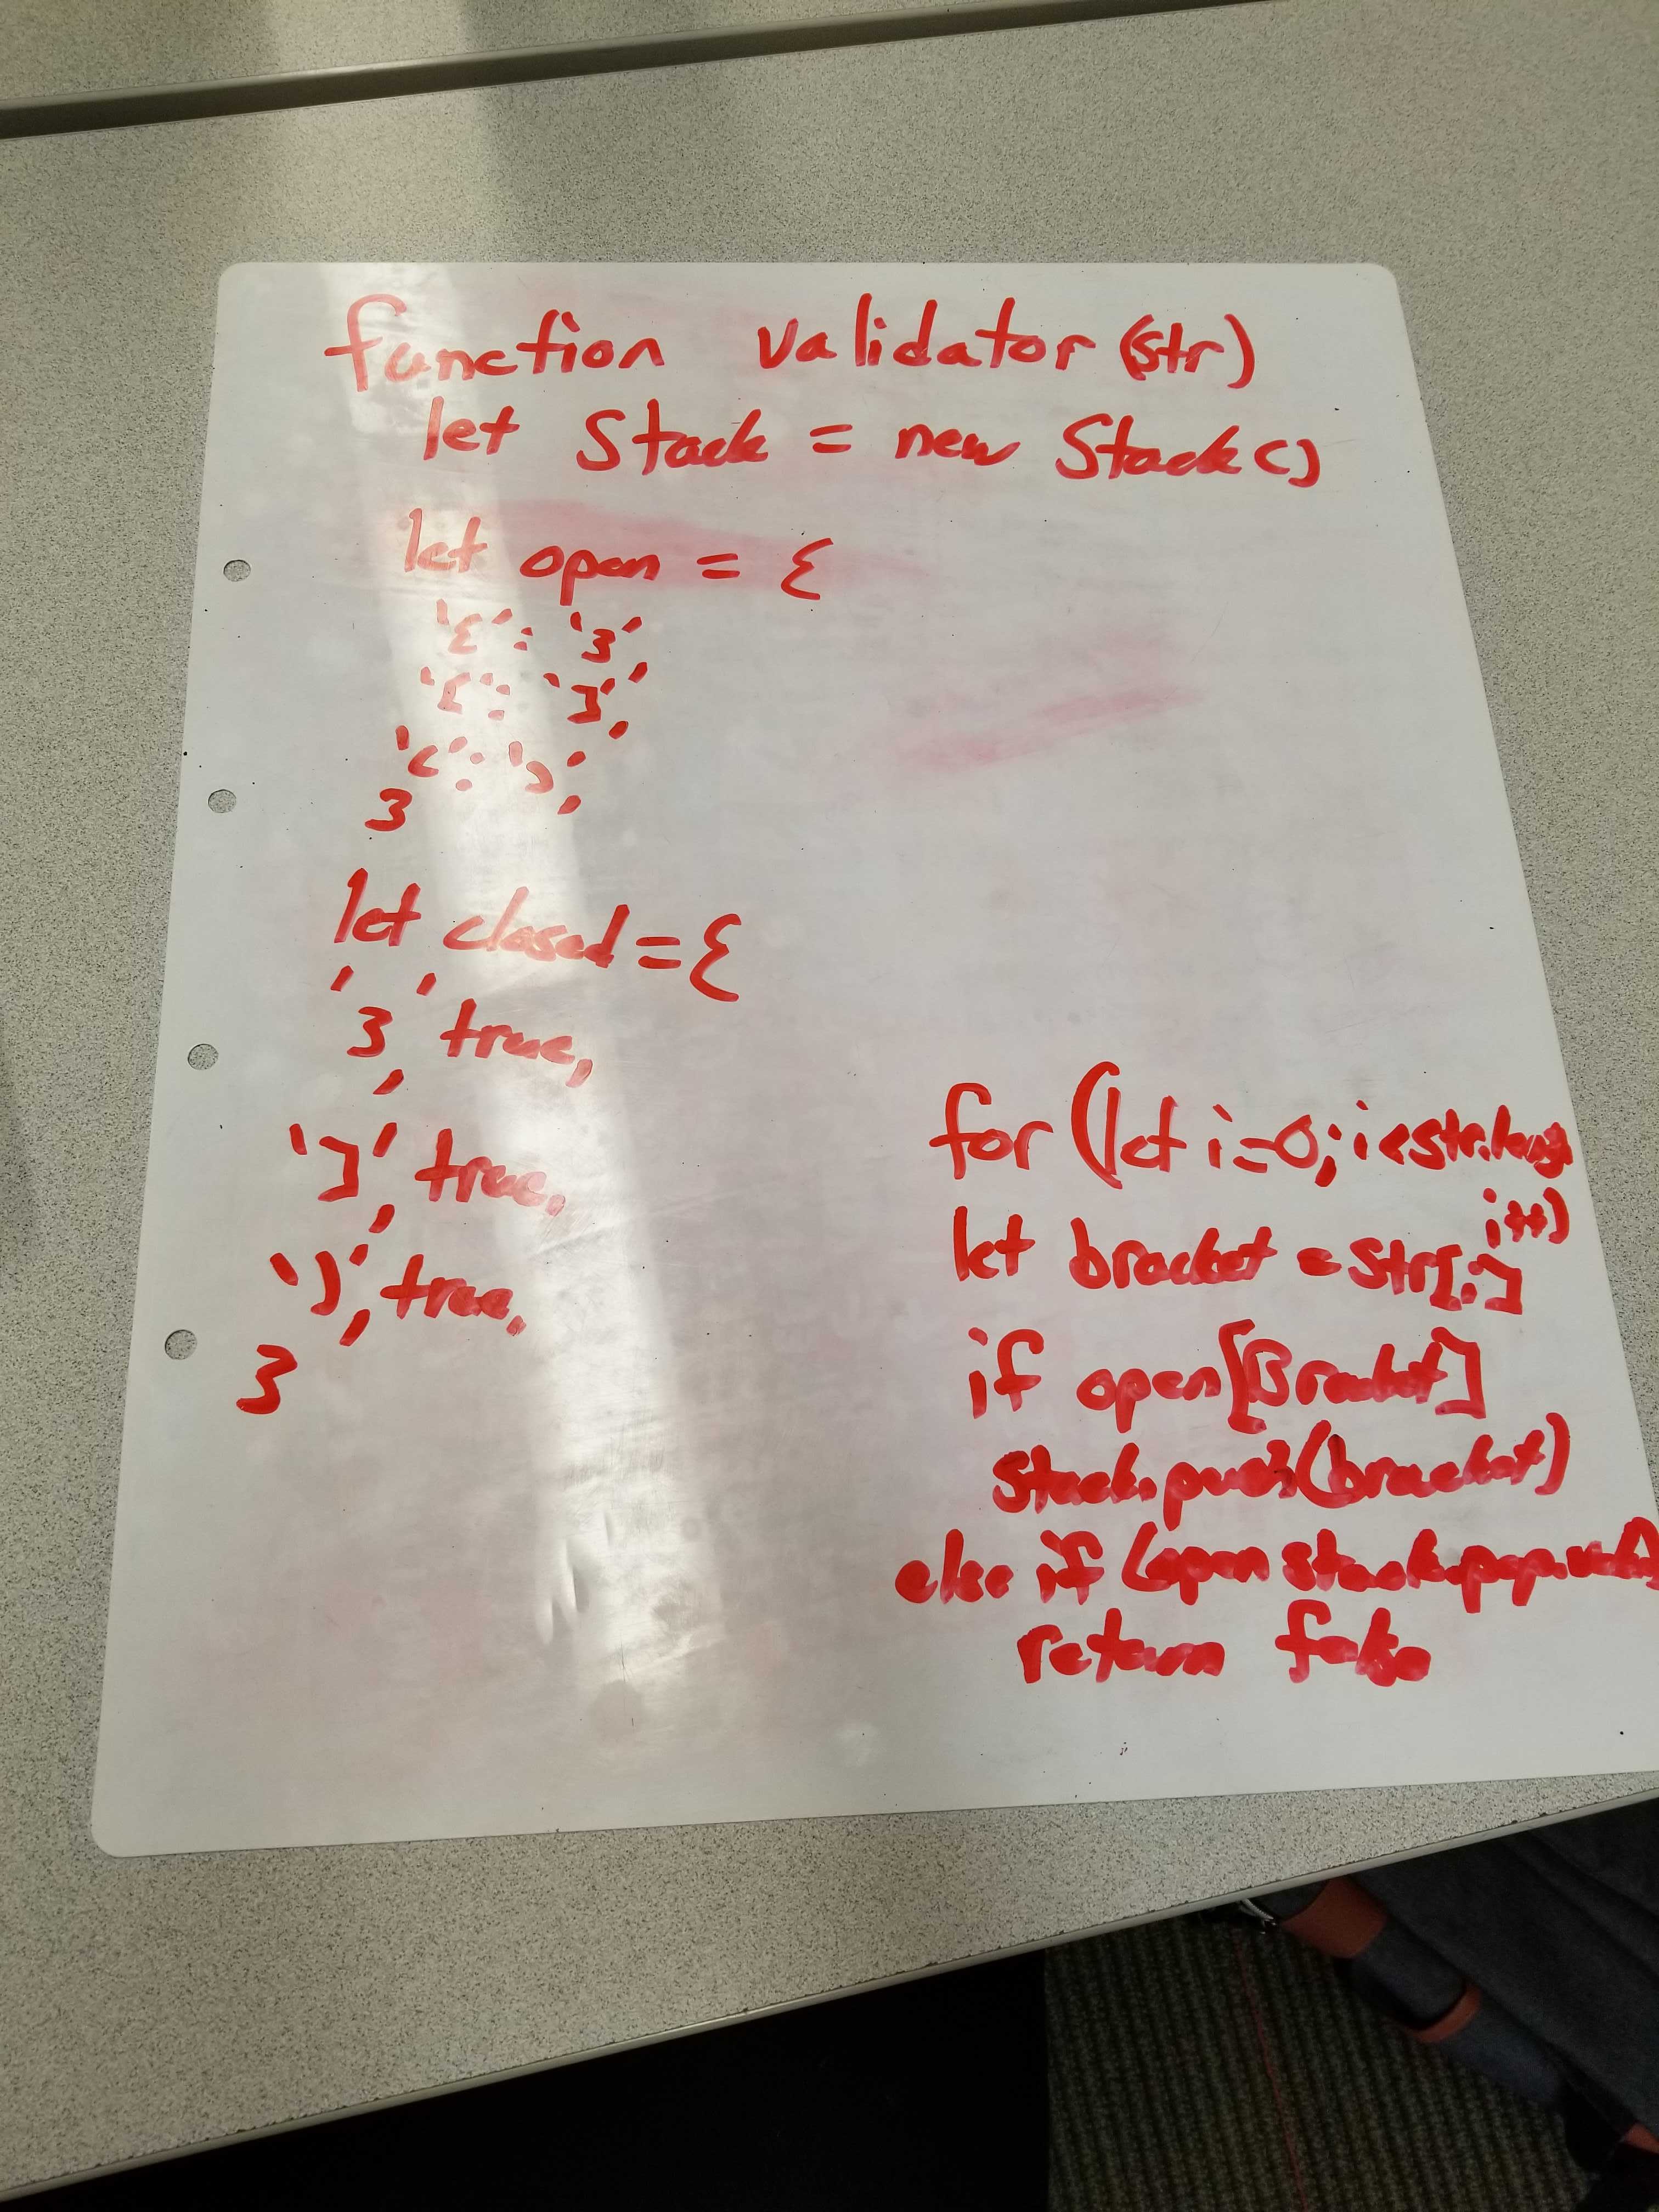 function validator (str)
let Stack = new Stack()
let open = {
'{': '}',
'[': ']',
'(': ')',
}
let closed = {
'}' true,
']', true,
')', true,
}
for (let i=0; i<str.leng
i++)
let bracket = str[i]
if open[Bracket]
stack.push(bracket)
else if (open stack.pop.
return false